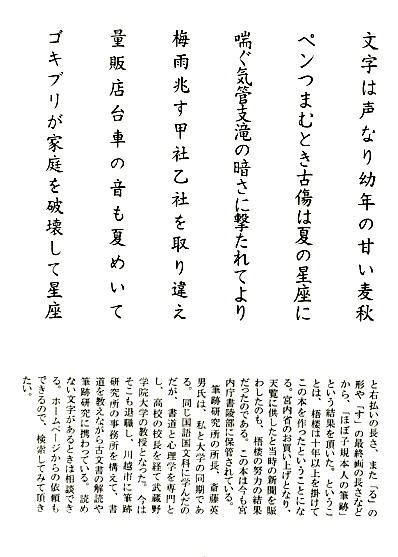 文字は声なり幼年の甘い麦秋
ペンつまむとき古傷は夏の星座に
喘ぐ気管支滝の暗さに撃たれてより
梅雨兆す甲社乙社を取り違え
量販店台車の音も夏めいて
ゴキブリが家庭を破壊して星座
と右払いの長さ、また「る」の
形や「す」の最終画の長さなど
から、「ほぼ子規本人の筆跡」
という結果を頂いた。というこ
とは、梧楼は十年以上を掛けて
この本を作ったということにな
る。宮内省のお買い上げとなり、
天覧に供したと当時の新聞を賑
わしたのも、梧楼の努力の結果
だったのである。この本は今も宮
内庁書陵部に保管されている。
筆跡研究所の所長、斎藤英
男氏は、私と大学の同期であ
る。同じ国語国文科に学んだの
だが、書道と心理学を専門と
し、高校の校長を経て武蔵野
学院大学の教授となった。今は
そこも退職し、川越市に筆跡
研究所の事務所を構えて、書
道を教えながら古文書の解読や
筆跡研究に携わっている。読め
ない文字があるときは相談でき
る。ホームページからの依頼も
できるので、検索してみて頂き
たい。